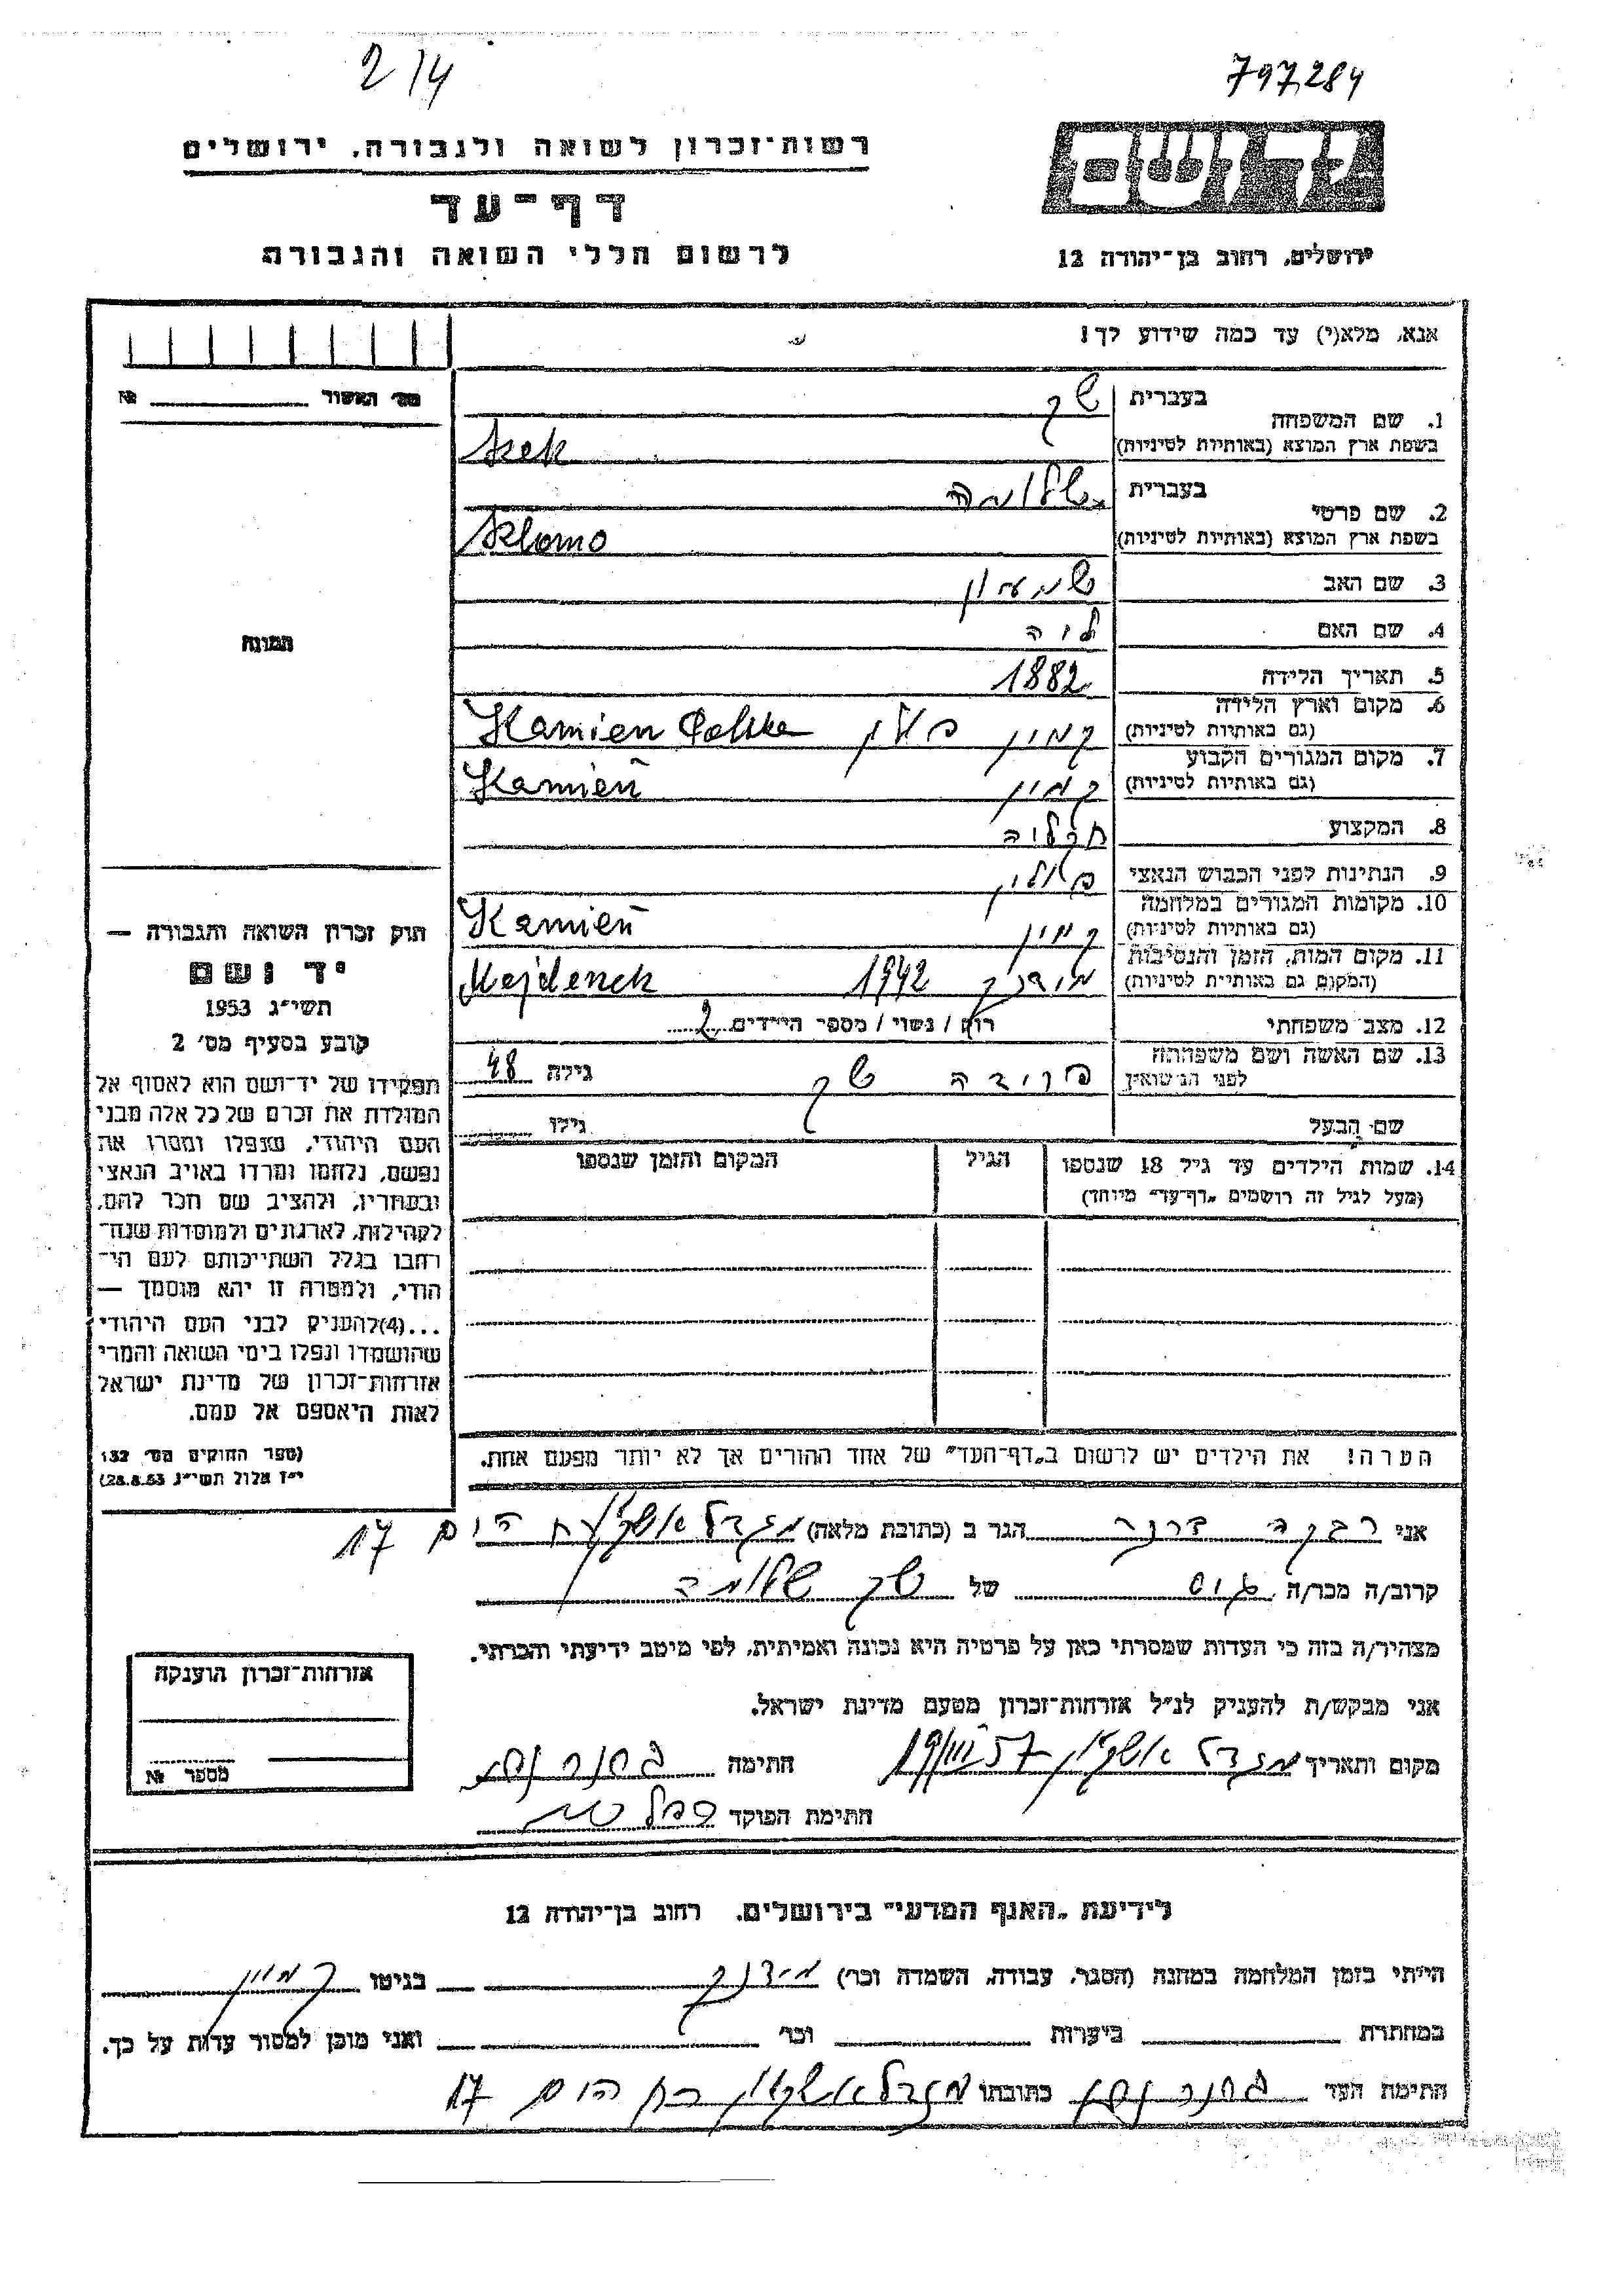 2/4
797,284
רשות־זכרון לשואה ולגבורה, ירושלים
דף־עד
לרשום חללי השואה והגבורה
יד ושם
ירושלים, רחוב בן־יהודה 12
אנא, מלא(י) עד כמה שידוע לך!
מס׳ האשור № ____
1. שם המשפחה בעברית שק
בשפת ארץ המוצא (באותיות לטיניות) Szek
2. שם פרטי בעברית שלומה
בשפת ארץ המוצא (באותיות לטיניות) Szlomo
3. שם האב שמעון
4. שם האם לוה
5. תאריך הלידה 1882
6. מקום וארץ הלידה (גם באותיות לטיניות) קמין פולין Kamien Polska
7. מקום המגורים הקבוע (גם באותיות לטיניות) קמין Kamień
8. המקצוע
9. הנתינות לפני הכבוש הנאצי פולין
10. מקומות המגורים במלחמה (גם באותיות לטיניות) קמין Kamień
11. מקום המות, הזמן והנסיבות (המקום גם באותיות לטיניות) מידנק 1942 Majdenek
12. מצב משפחתי רוק / נשוי / מספר הילדים 2
13. שם האשה ושם משפחתה לפני הנישואין פרידה שק גילה 48
שם הבעל גילו
14. שמות הילדים עד גיל 18 שנספו הגיל המקום והזמן שנספו
(מעל לגיל זה רושמים „דף־עד״ מיוחד)
התמונה
חוק זכרון השואה והגבורה —
יד ושם
תשי״ג 1953
קובע בסעיף מס׳ 2
תפקידו של יד־ושם הוא לאסוף אל
המולדת את זכרם של כל אלה מבני
העם היהודי, שנפלו ומסרו את
נפשם, נלחמו ומרדו באויב הנאצי
ובעוזריו, ולהציב שם וזכר להם,
לקהילות, לארגונים ולמוסדות שנח־
רבו בגלל השתייכותם לעם הי־
הודי, ולמטרה זו יהא מוסמך —
...(4) להעניק לבני העם היהודי
שהושמדו ונפלו בימי השואה והמרי
אזרחות־זכרון של מדינת ישראל
לאות היאספם אל עמם.
(ספר החוקים מס׳ 132
י״ז אלול תשי״ג 28.8.53)
הערה! את הילדים יש לרשום ב„דף־העד״ של אחד ההורים אך לא יותר מפעם אחת.
אני רבקה הגר ב (כתובת מלאה) מגדל אשקלון רח הים 17
קרוב/ה מכר/ה גיס של שק שלומה
מצהיר/ה בזה כי העדות שמסרתי כאן על פרטיה היא נכונה ואמיתית, לפי מיטב ידיעתי והכרתי.
אני מבקש/ת להעניק לנ״ל אזרחות־זכרון מטעם מדינת ישראל.
מקום ותאריך מגדל אשקלון 19/VII 57 חתימה
חתימת הפוקד
אזרחות־זכרון הוענקה
מספר №
לידיעת „האגף המדעי״ בירושלים, רחוב בן־יהודה 12
הייתי בזמן המלחמה במחנה (הסגר, עבודה, השמדה וכר׳) מידנק בגיטו קמיון
במחתרת ביערות וכר׳ ואני מוכן למסור עדות על כך.
חתימת העד כתובתו מגדל אשקלון רח הים 17